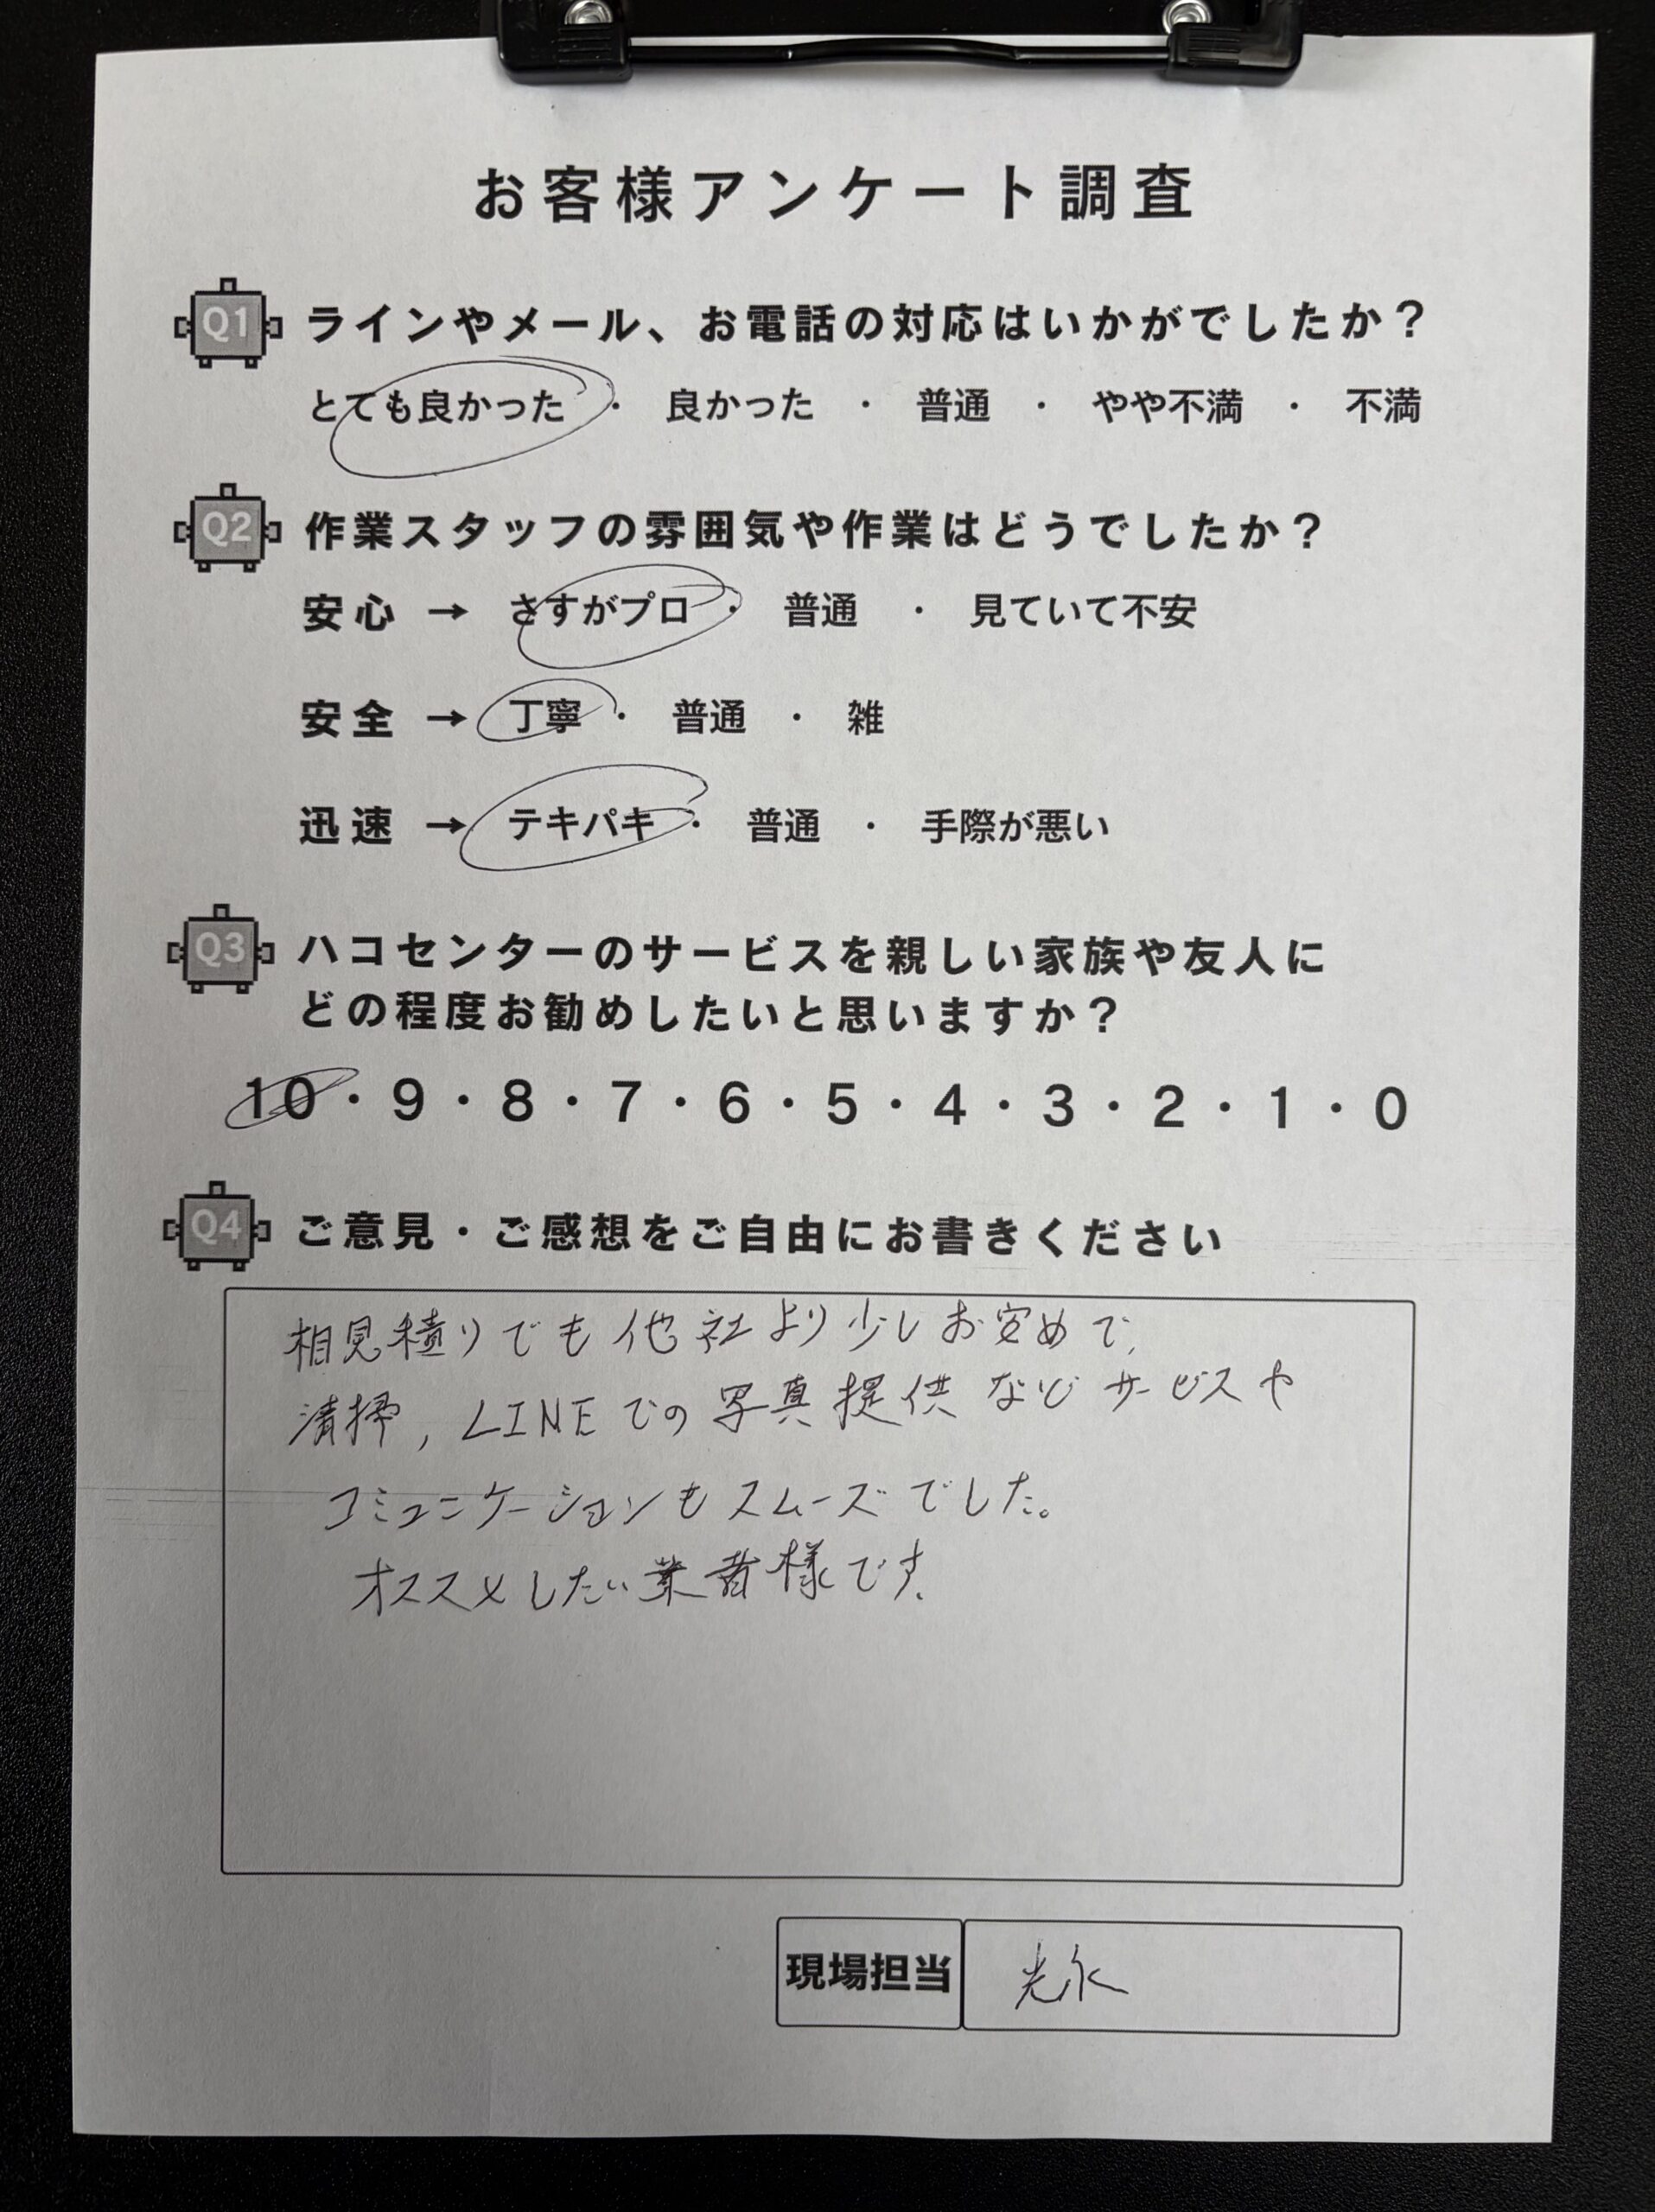 お客様アンケート調査
Q1 ラインやメール、お電話の対応はいかがでしたか？
とても良かった ・ 良かった ・ 普通 ・ やや不満 ・ 不満
Q2 作業スタッフの雰囲気や作業はどうでしたか？
安心 → さすがプロ ・ 普通 ・ 見ていて不安
安全 → 丁寧 ・ 普通 ・ 雑
迅速 → テキパキ ・ 普通 ・ 手際が悪い
Q3 ハコセンターのサービスを親しい家族や友人に
どの程度お勧めしたいと思いますか？
10・9・8・7・6・5・4・3・2・1・0
Q4 ご意見・ご感想をご自由にお書きください
相見積りでも他社より少しお安めで、
清掃，LINEでの写真提供などサービスや
コミュニケーションもスムーズでした。
オススメしたい業者様です。
現場担当 光永